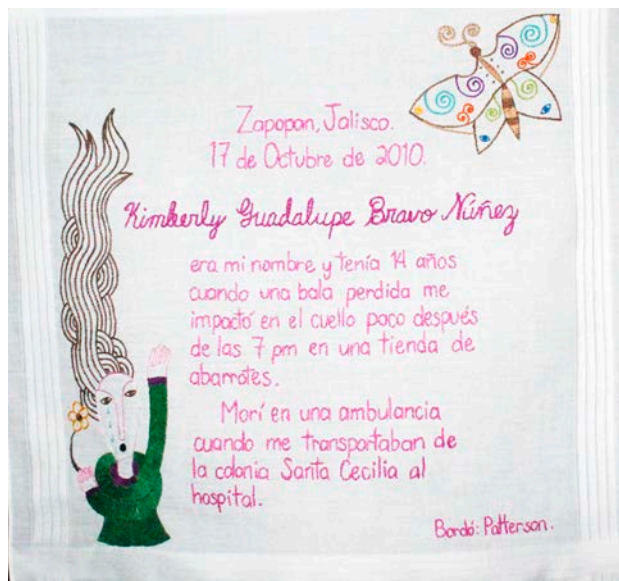 Zapopan, Jalisco.
17 de Octubre de 2010.
Kimberly Guadalupe Bravo Núñez
era mi nombre y tenía 14 años
cuando una bala perdida me
impactó en el cuello poco después
de las 7 pm en una tienda de
abarrotes.
Morí en una ambulancia
cuando me transportaban de
la colonia Santa Cecilia al
hospital.
Bordó: Patterson.